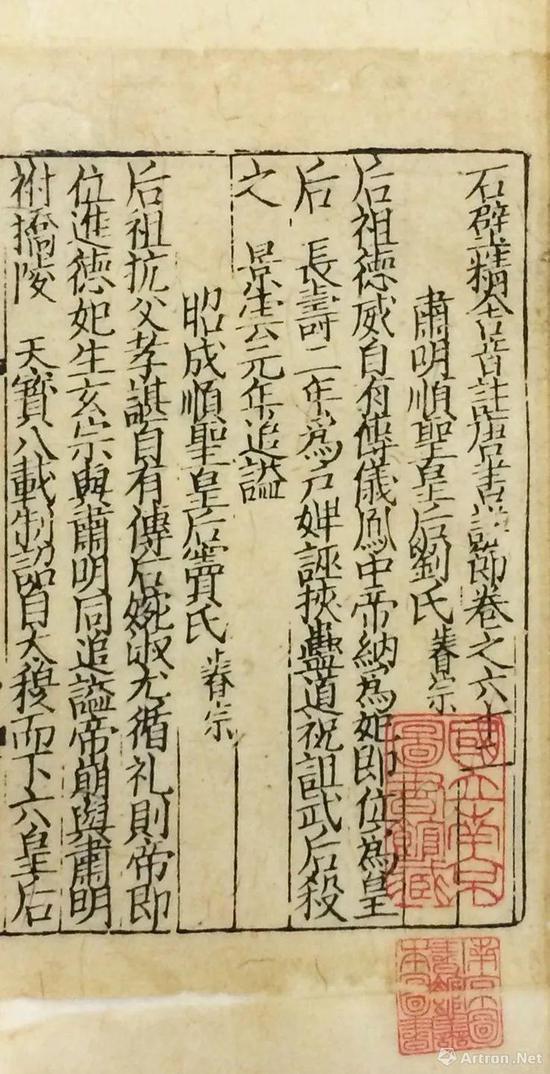 石壁精舍音註唐書詳節卷之六十
肅明順聖皇后劉氏 睿宗
后祖德威自有傳儀鳳中帝納為妃即位為皇
后 長壽二年為戶婢誣挾蠱道祝詛武后殺
之 景雲元年追謚
昭成順聖皇后竇氏 睿宗
后祖抗父孝諶自有傳后婉淑尤循礼則帝即
位進德妃生玄宗與肅明同追謚帝崩與肅明
祔橋陵 天寶八載制詔自太穆而下六皇后
國立南京
圖書館藏
Artron.Net